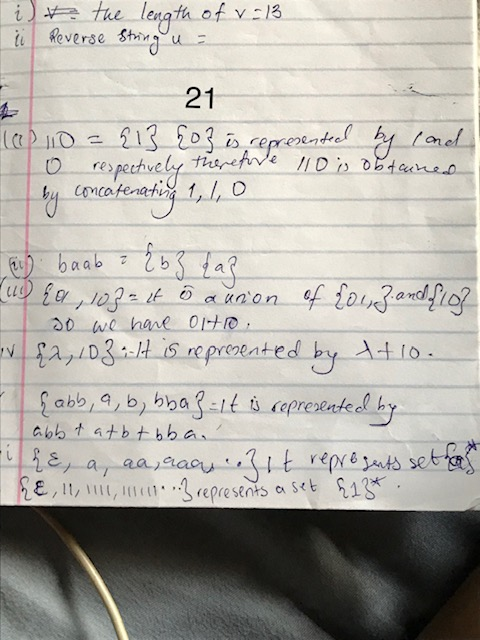 i) the length of v = 13
ii Reverse string u =
21
(i) 110 = {1} {0} is represented by 1 and
0 respectively therefore 110 is obtained
by concatenating 1, 1, 0
(ii) baab = {b} {a}
(iii) {01, 10} = it is a union of {01,} and {10}
so we have 01+10.
iv {λ, 10} :- It is represented by λ + 10.
{abb, a, b, bba} = It is represented by
abb + a+b + bba.
i {ε, a, aa, aaa, ...} It represents set {a}*
{ε, 11, 1111, 111111 ...} represents a set {11}*.